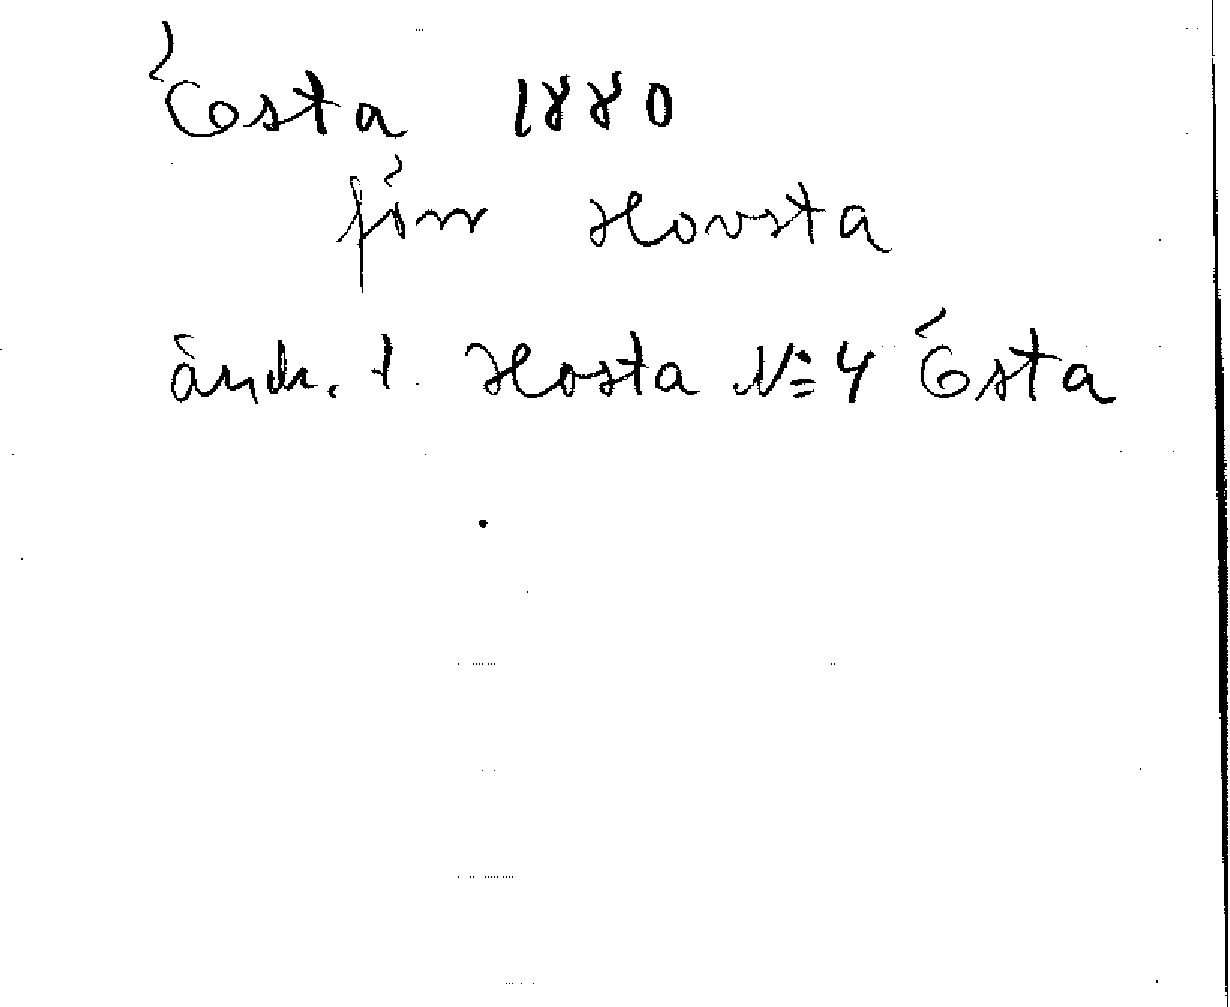 Östa 1880
förr Hovsta
ändr. t. Hosta No: 4 Östa